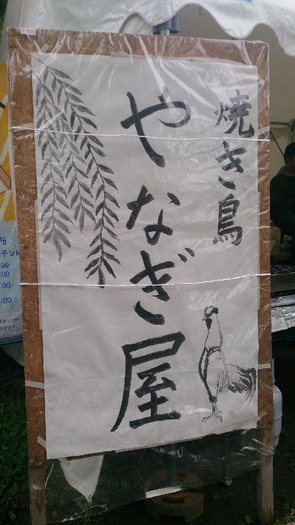 焼き鳥
やなぎ屋